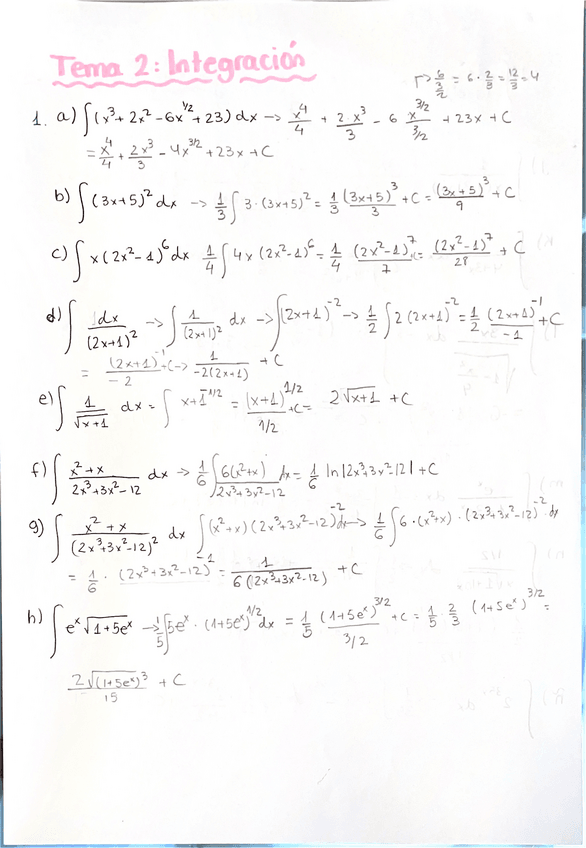 Tema 2: Integración
↱ 6/(3/2) = 6 · 2/3 = 12/3 = 4
1. a) ∫(x³ + 2x² - 6x^1/2 + 23) dx → x⁴/4 + 2x³/3 - 6 x^3/2/(3/2) + 23x + C
= x⁴/4 + 2x³/3 - 4x^3/2 + 23x + C
b) ∫(3x+5)² dx → 1/3 ∫ 3·(3x+5)² = 1/3 (3x+5)³/3 + C = (3x+5)³/9 + C
c) ∫x(2x²-1)⁶ dx 1/4 ∫ 4x (2x²-1)⁶ = 1/4 (2x²-1)⁷/7 = (2x²-1)⁷/28 + C
d) ∫ dx/(2x+1)² → ∫ 1/(2x+1)² dx → ∫(2x+1)⁻² → 1/2 ∫ 2(2x+1)⁻² = 1/2 (2x+1)⁻¹/-1 + C
= (2x+1)⁻¹/-2 + C → 1/-2(2x+1) + C
e) ∫ 1/√x+1 dx = ∫ x+1^-1/2 = (x+1)^1/2/1/2 + C = 2√x+1 + C
f) ∫ x²+x/2x³+3x²-12 dx → 1/6 ∫ 6(x²+x)/2x³+3x²-12 dx = 1/6 ln|2x³+3x²-12| + C
g) ∫ x²+x/(2x³+3x²-12)² dx ∫(x²+x)(2x³+3x²-12)⁻² dx → 1/6 ∫ 6·(x²+x)·(2x³+3x²-12)⁻² dx
= 1/6 · (2x³+3x²-12)⁻¹ = 1/6(2x³+3x²-12) + C
h) ∫ eˣ √1+5eˣ → 1/5 ∫ 5eˣ · (1+5eˣ)^1/2 dx = 1/5 (1+5eˣ)^3/2/3/2 + C = 1/5 · 2/3 (1+5eˣ)^3/2 =
2√(1+5eˣ)³/15 + C